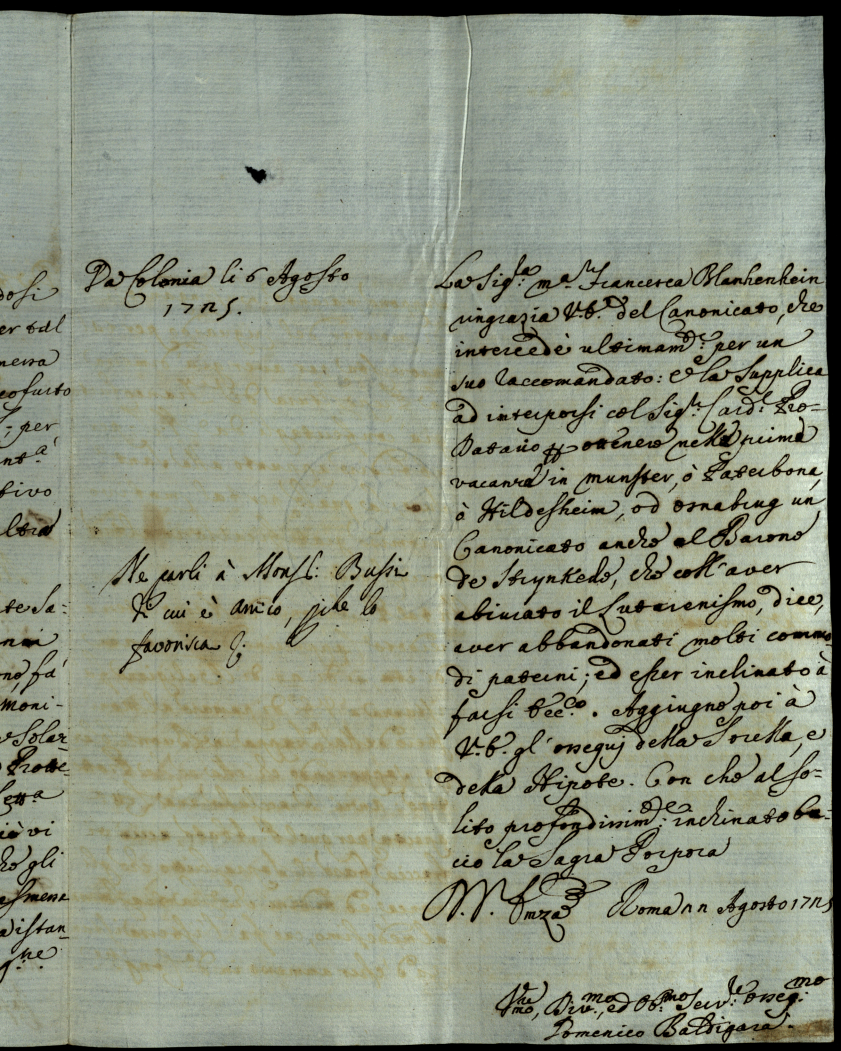 dosi
er tal
per
tivo
te Sa:
moni-
Solar-
vi
gli
istan-
Da Colonia li 6 Agosto
1725.
Ne parli à Mons.r: Bussi
di cui è amico, pche lo
favorisca
La Sig.ra m.a Francesca Blanhenhein
ringrazia V.E. del Canonicato, che
intercedè ultimam.te: per un
suo raccomandato: e la supplica
ad interporsi col Sig.r Card.l Pro-
Datario pp ottenere nella prima
vacanza in munster, ò Paterbona,
à Hildesheim, od osnabrug un
Canonicato anche al Barone
de Strynkede, che coll'aver
abiurato il Luteranismo, dice,
aver abbandonati molti commo-
di paterni; ed esser inclinato à
farsi Ecc.co. Aggiugne poi à
V.E. gl'ossequj della Sorella, e
della Nipote. Con che al so-
lito profondissim.te inchinato ba-
cio la Sagra Porpora
D. V. Emza Roma 22 Agosto 1725
Vmo, Div.mo, ed Ob.mo Serv.re osseq.mo
Domenico Baldigara.